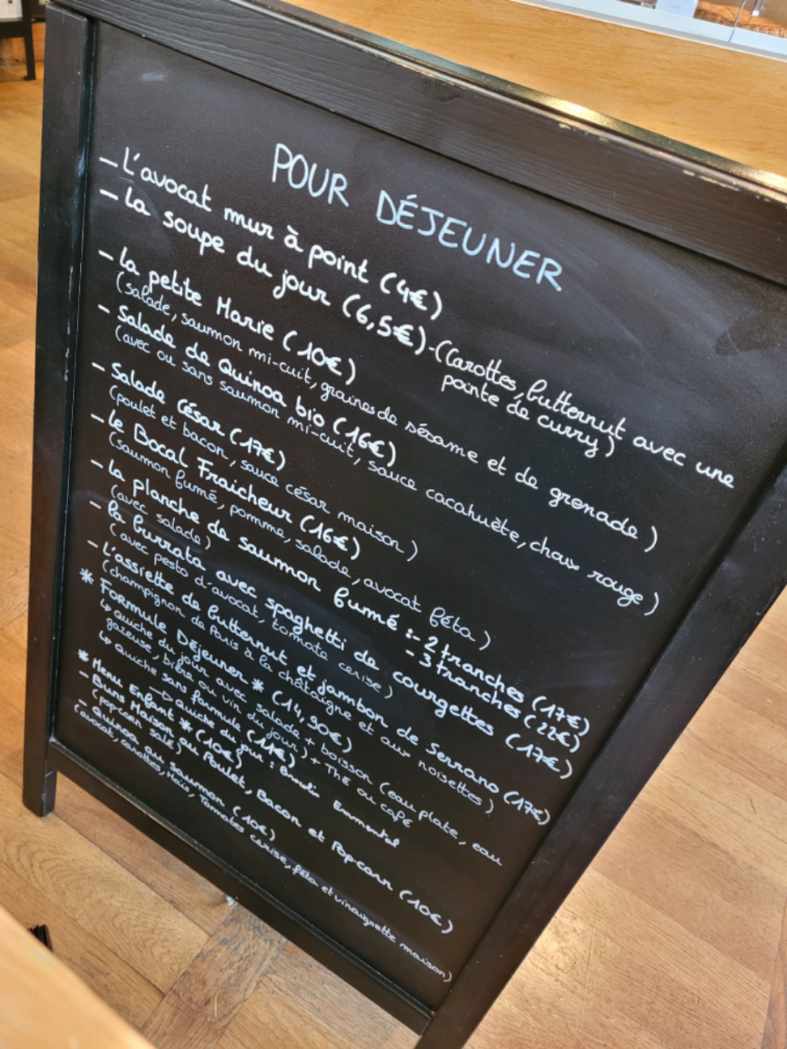 POUR DÉJEUNER
- L'avocat mur à point (4€)
- la soupe du jour (6,5€) - (Carottes, butternut avec une
pointe de curry)
- la petite Marie (10€)
(salade, saumon mi-cuit, graines de sésame et de grenade)
- Salade de Quinoa bio (16€)
(avec ou sans saumon mi-cuit, sauce cacahuète, choux rouge)
- Salade César (17€)
(poulet et bacon, sauce césar maison)
- le Bocal Fraicheur (16€)
(saumon fumé, pomme, salade, avocat féta)
- la planche de saumon fumé :- 2 tranches (17€)
(avec salade) - 3 tranches (22€)
- la burrata avec spaghetti de courgettes (17€)
(avec pesto d'avocat, tomate cerise)
- l'assiette de butternut et jambon de Serrano (17€)
(champignon de Paris à la châtaigne et aux noisettes)
* Formule Déjeuner * (14,90€)
↳ quiche du jour avec salade + boisson (eau plate, eau
gazeuse, bière ou vin du jour) + Thé ou café
↳ quiche sans formule (11€)
→ quiche du jour : Emmental
* Menu Enfant * (10€)
- Buns Maison au Poulet, Bacon et Popcorn (10€)
(popcorn salé)
- Quinoa au saumon (10€)
(avocat, carottes, Maïs, Tomates cerise, féta et vinaigrette maison)